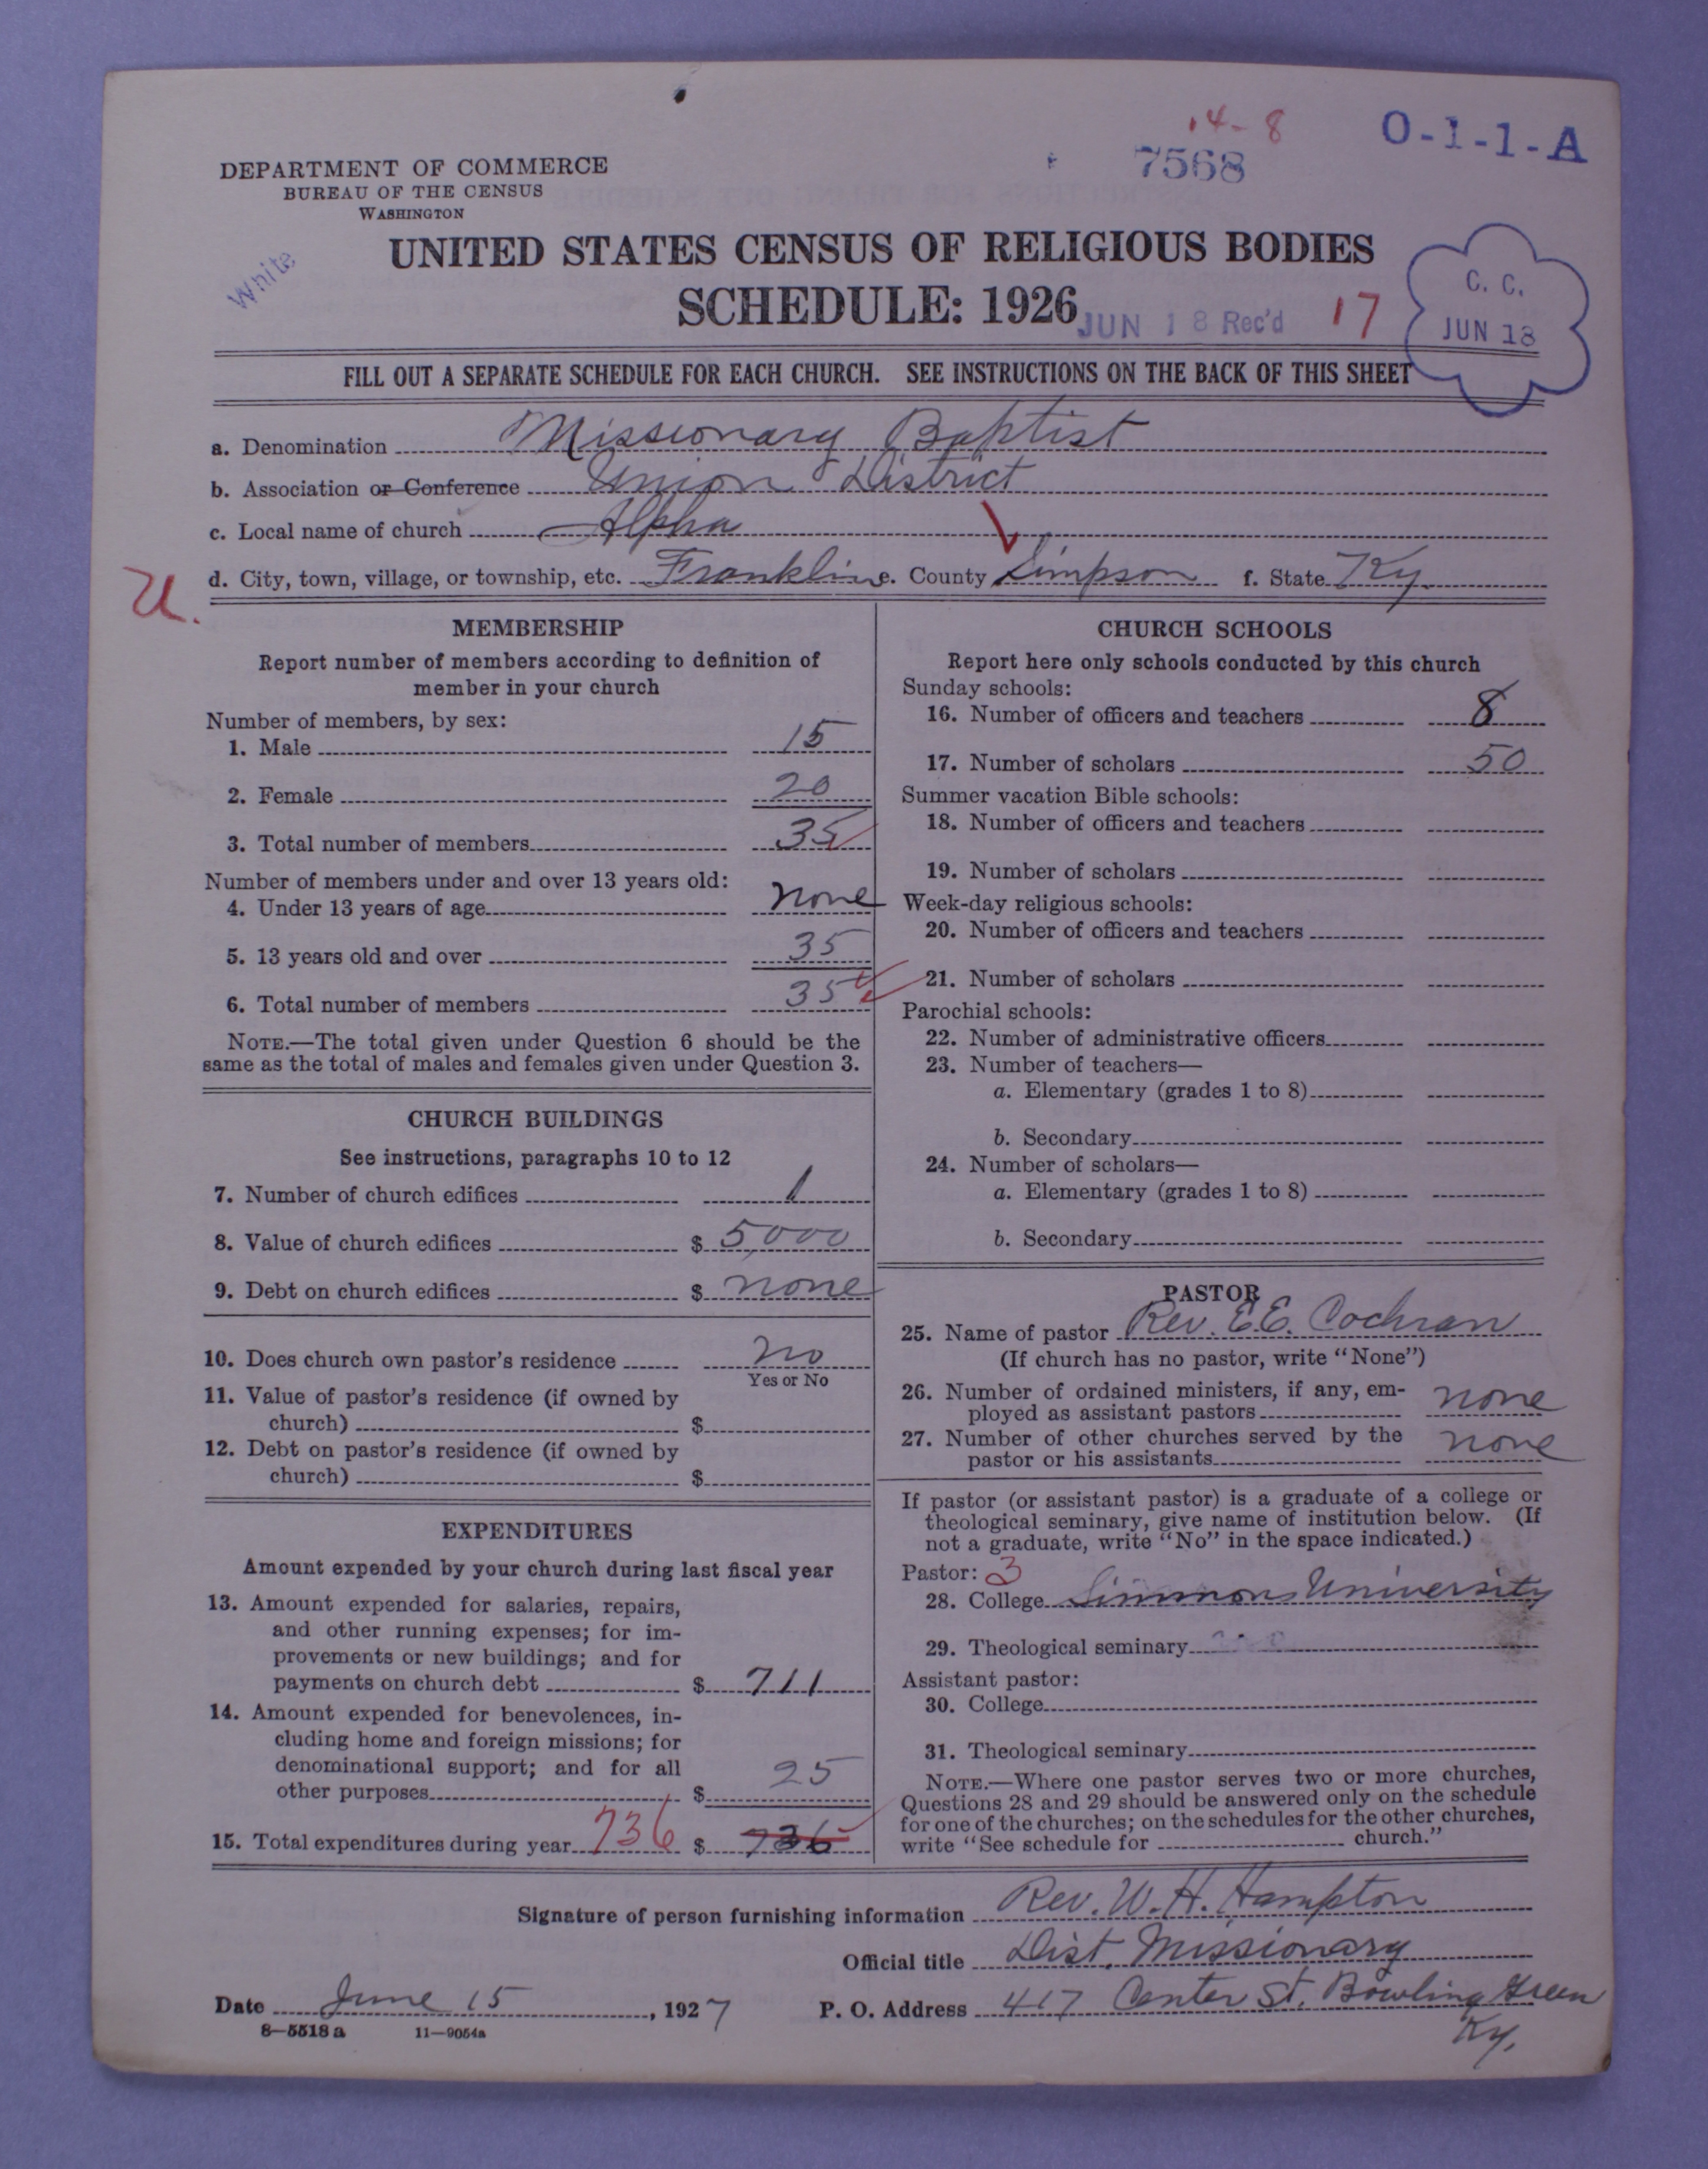 14-8
7568
O-1-1-A
DEPARTMENT OF COMMERCE
BUREAU OF THE CENSUS
WASHINGTON
White
UNITED STATES CENSUS OF RELIGIOUS BODIES
SCHEDULE: 1926
JUN 18 Rec'd
17
C. C.
JUN 18
FILL OUT A SEPARATE SCHEDULE FOR EACH CHURCH. SEE INSTRUCTIONS ON THE BACK OF THIS SHEET
a. Denomination Missionary Baptist
b. Association or Conference Union District
c. Local name of church Alpha
d. City, town, village, or township, etc. Franklin e. County Simpson f. State Ky.
U.
MEMBERSHIP
Report number of members according to definition of
member in your church
Number of members, by sex:
1. Male 15
2. Female 20
3. Total number of members 35
Number of members under and over 13 years old:
4. Under 13 years of age none
5. 13 years old and over 35
6. Total number of members 35
NOTE.—The total given under Question 6 should be the
same as the total of males and females given under Question 3.
CHURCH BUILDINGS
See instructions, paragraphs 10 to 12
7. Number of church edifices 1
8. Value of church edifices $ 5000
9. Debt on church edifices $ none
10. Does church own pastor's residence no
Yes or No
11. Value of pastor's residence (if owned by
church) $
12. Debt on pastor's residence (if owned by
church) $
EXPENDITURES
Amount expended by your church during last fiscal year
13. Amount expended for salaries, repairs,
and other running expenses; for im-
provements or new buildings; and for
payments on church debt $ 711
14. Amount expended for benevolences, in-
cluding home and foreign missions; for
denominational support; and for all
other purposes $ 25
15. Total expenditures during year 736 $ 736
CHURCH SCHOOLS
Report here only schools conducted by this church
Sunday schools:
16. Number of officers and teachers 8
17. Number of scholars 50
Summer vacation Bible schools:
18. Number of officers and teachers
19. Number of scholars
Week-day religious schools:
20. Number of officers and teachers
21. Number of scholars
Parochial schools:
22. Number of administrative officers
23. Number of teachers—
a. Elementary (grades 1 to 8)
b. Secondary
24. Number of scholars—
a. Elementary (grades 1 to 8)
b. Secondary
PASTOR
25. Name of pastor Rev. E.E. Cochran
(If church has no pastor, write "None")
26. Number of ordained ministers, if any, em-
ployed as assistant pastors none
27. Number of other churches served by the
pastor or his assistants none
If pastor (or assistant pastor) is a graduate of a college or
theological seminary, give name of institution below. (If
not a graduate, write "No" in the space indicated.)
Pastor: 3
28. College Simmons University
29. Theological seminary
Assistant pastor:
30. College
31. Theological seminary
NOTE.—Where one pastor serves two or more churches,
Questions 28 and 29 should be answered only on the schedule
for one of the churches; on the schedules for the other churches,
write "See schedule for church."
Signature of person furnishing information Rev. W. H. Hampton
Official title Dist. Missionary
Date June 15, 1927 P. O. Address 417 Center St. Bowling Green
Ky.
8—5518 a 11—9054a